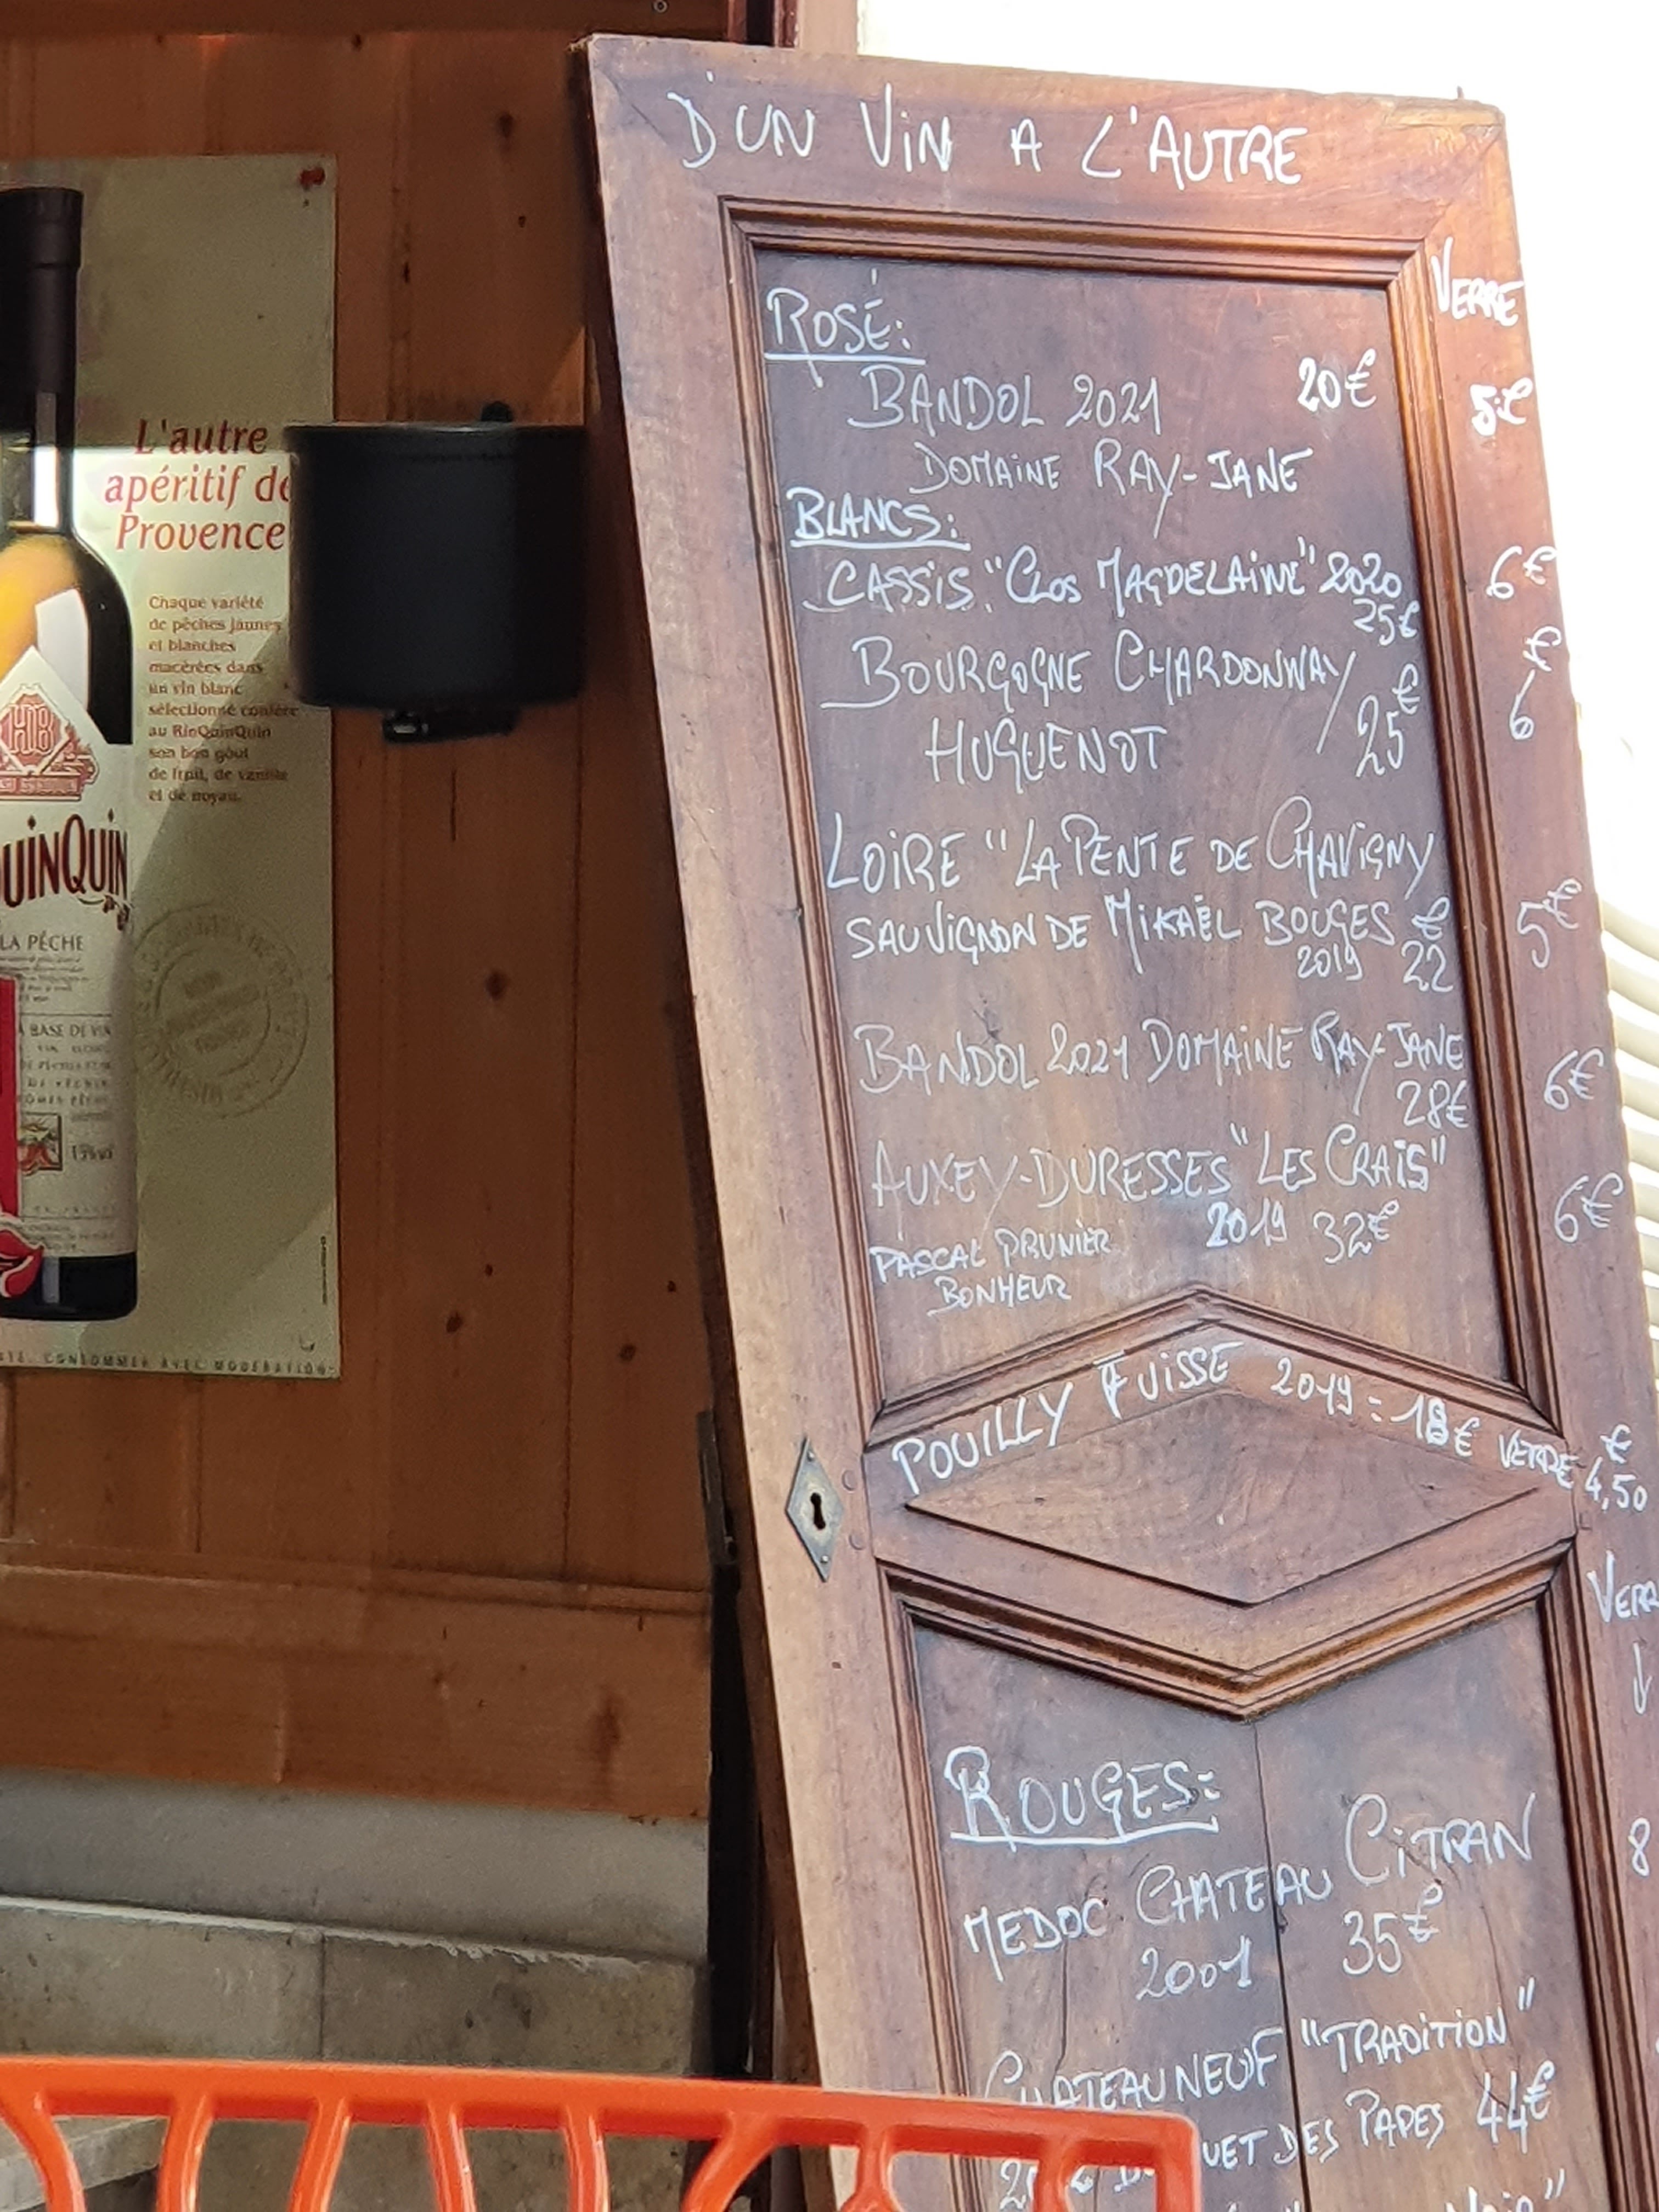 D'UN VIN A L'AUTRE
VERRE
ROSÉ:
BANDOL 2021 20€ 5€
DOMAINE RAY-JANE
BLANCS:
CASSIS "CLOS MAGDELAINE" 2020 6€
25€
BOURGOGNE CHARDONNAY 6€
HUGUENOT 25€
LOIRE "LA PENTE DE CHAVIGNY
SAUVIGNON DE MIKAËL BOUGES € 5€
2019 22
BANDOL 2021 DOMAINE RAY-JANE 6€
28€
AUXEY-DURESSES "LES CRAIS"
2019 32€ 6€
PASCAL PRUNIER
BONHEUR
POUILLY FUISSE 2019 = 18€ VERRE € 4,50
VERR
ROUGES:
MEDOC CHATEAU CITRAN 8
2001 35€
CHATEAUNEUF "TRADITION"
UET DES PAPES 44€
L'autre
apéritif de
Provence
Chaque variété
de pêches jaunes
et blanches
macérées dans
un vin blanc
sélectionné confère
au RinQuinQuin
son bon goût
de fruit, de vanille
et de noyau.
HB
UINQUIN
LA PÊCHE
À BASE DE VIN
15%vol
CONSOMMER AVEC MODERATION